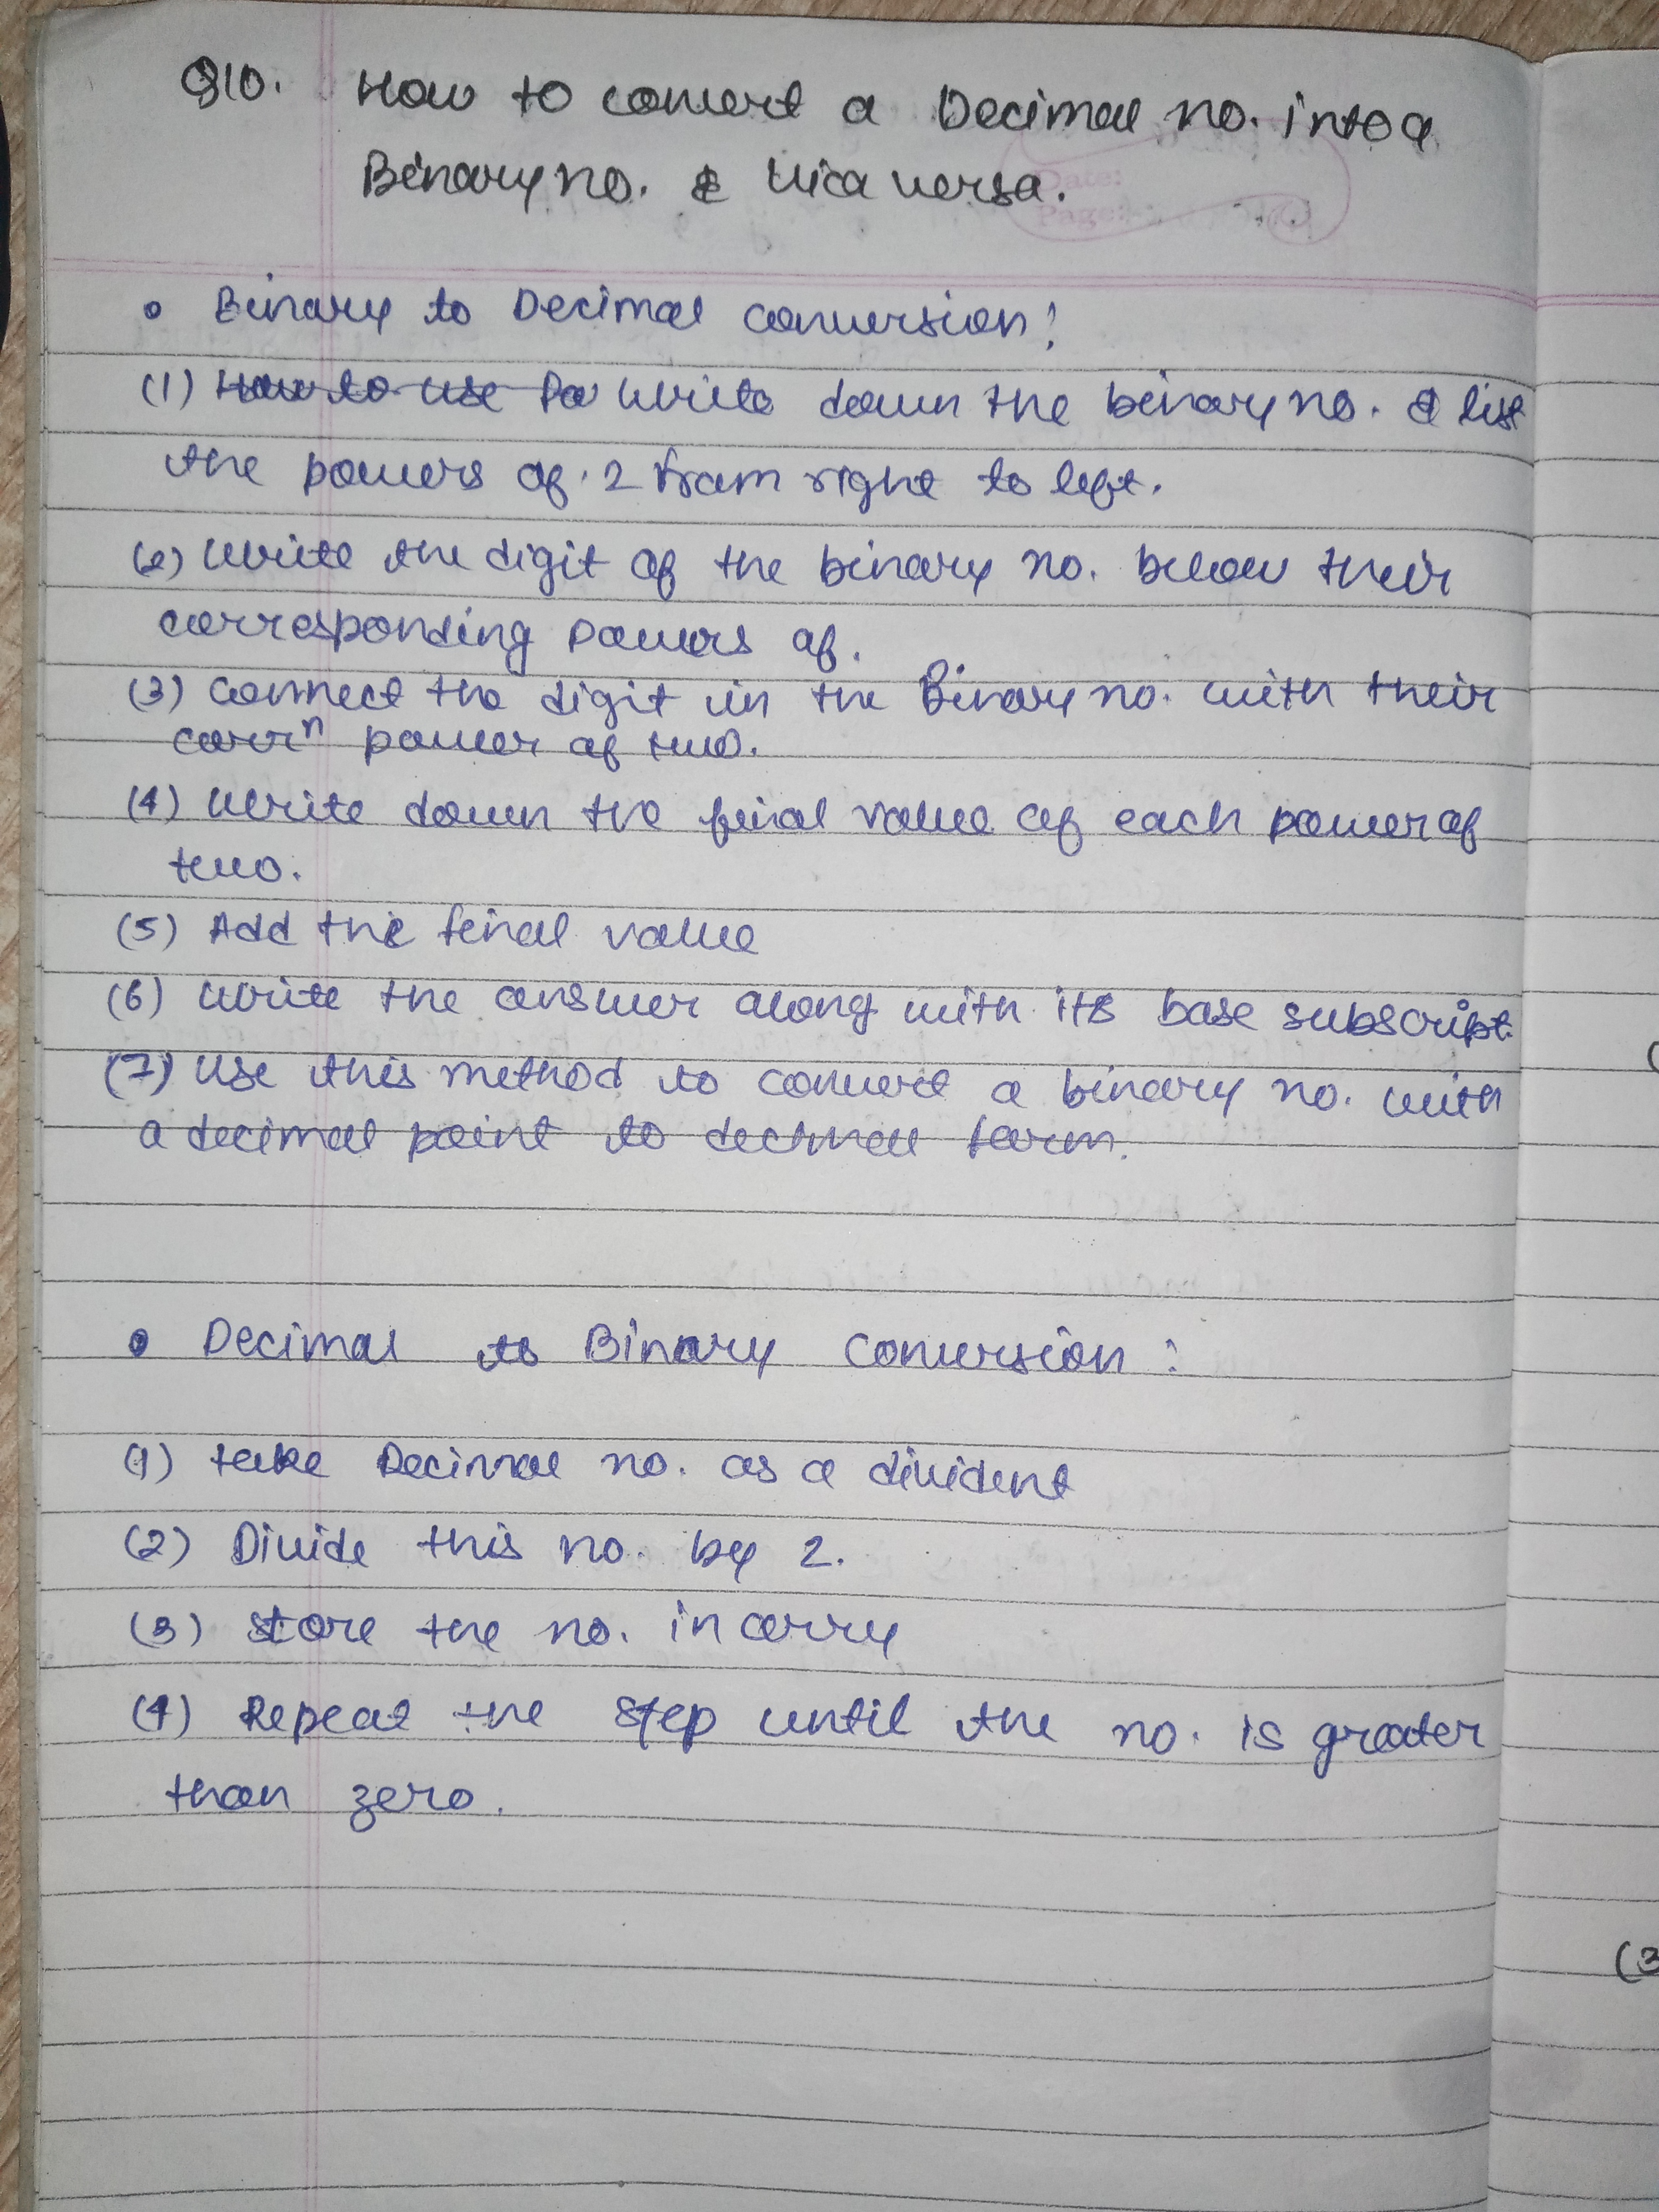 Q10. How to convert a Decimal no. into a
Binary no. & vica versa.
Date:
Page:
• Binary to Decimal conversion:
(1) How to use Po write down the binary no. & list
the powers of 2 from right to left.
(2) write the digit of the binary no. below their
corresponding powers of.
(3) connect the digit in the Binary no. with their
corrⁿ power of two.
(4) write down the feinal value of each power of
two.
(5) Add the feinal value
(6) write the answer along with its base subscript.
(7) use this method to convert a binary no. with
a decimal point to decimal form.
• Decimal to Binary Conversion:
(1) take Decimal no. as a divident
(2) Divide this no. by 2.
(3) store the no. in carry
(4) Repeat the step until the no. is greater
than zero.
(3